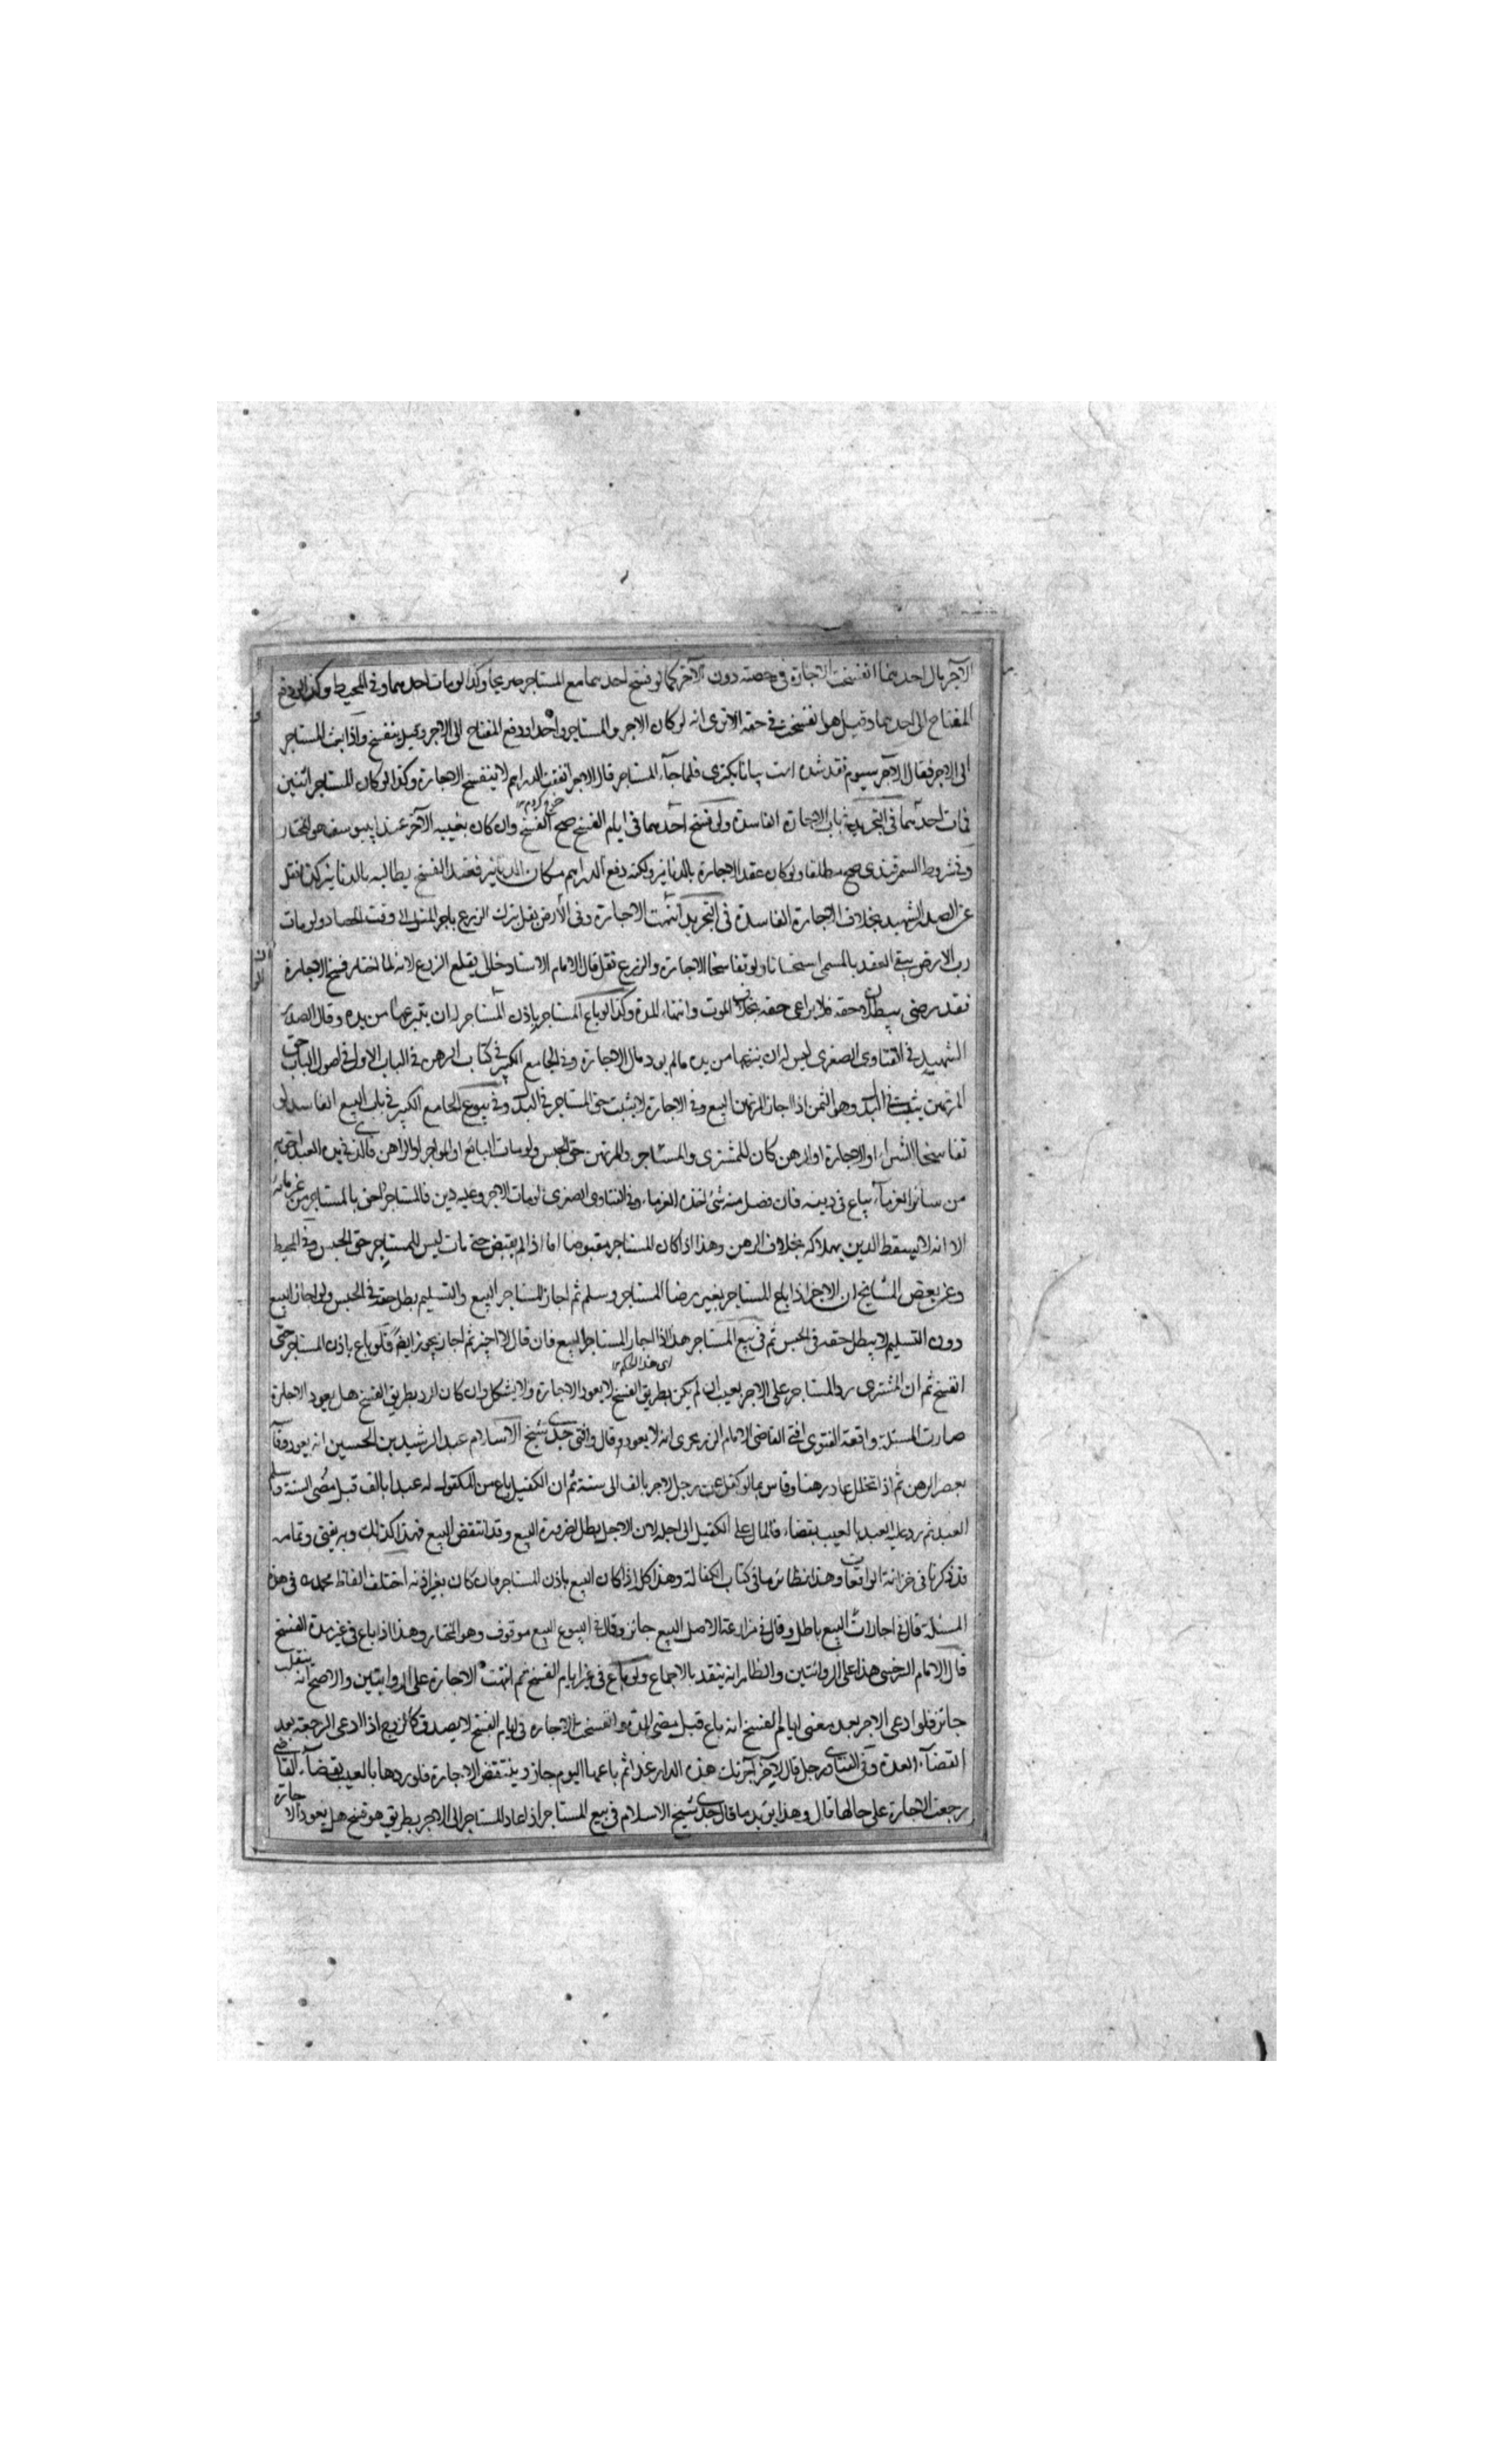 الآجر مال احدهما انفسخت الاجارة في حصته دون الآخر كما لو فسخ احدهما مع المستاجر صريحا وكذا لو مات احدهما وفي المحيط وكذا لو دفع
المفتاح الى احدهما وقبل هل انفسخت في حقه الا ترى انه لو كان الاجر والمستاجر واحدا ودفع المفتاح الى الاجر وقبل ينفسخ واذا بعث المستاجر
الى الاجر فقال الآجر سيوم نقد شده است بيا تا بگيرى فلما جآء المستاجر قال الاجر انفقت الدراهم لا ينفسخ الاجارة وكذا لو كان المستاجر اثنين
فمات احدهما في التجريد في باب الاجارة الفاسدة ولو فسخ احدهما في ايام الفسخ صح الفسخ وان كان بغيبة الآخر عند ابي يوسف هو المختار
وفي شروط السمرقندى صح مطلقا ولو كان عقد الاجارة بالدنانير ولكنه دفع الدراهم مكان الدنانير فعند الفسخ يطالبه بالدنانير كذا نقل
عن الصدر الشهيد بخلاف الاجارة الفاسدة في التجريد انتهت الاجارة وفي الأرض بقل يترك الزرع باجر المثل الى وقت الحصاد ولو مات
رب الارض يبقى العقد بالمسمى استحسانا ولو تفاسخا الاجارة والزرع بقل قال الامام الاستاد خالى يقلع الزرع لانه لما اختار فسخ الاجارة
فقد رضى ببطلان حقه فلا يراعى حقه بخلاف الموت وانتهاء المدة وكذا لو باع المستاجر باذن المستاجر له ان ينتزعها من يده وقال الصدر
الشهيد في الفتاوى الصغرى ليس له ان ينتزعها من يده مالم يود مال الاجارة وفي الجامع الكبير في كتاب الرهن في الباب الاول في اصول الباب حق
المرتهن يثبت في البدل وهو الثمن اذا اجاز المرتهن البيع وفي الاجارة لا يثبت حق المستاجر في البدل وفي بيوع الجامع الكبير في باب البيع الفاسد لو
تفاسخا الشراء او الاجارة او الرهن كان للمشترى والمستاجر والمرتهن حق الحبس ولو مات البائع او المواجر او الراهن فالذى في يده العبد احق به
من سائر الغرمآء يباع في دينه فان فضل منه شئ اخذه الغرماء وفي الفتاوى الصغرى لو مات الاجر وعليه دين فالمستاجر احق بالمستاجر من غرمائه
الا انه لا يسقط الدين بهلاكه بخلاف الرهن وهذا اذا كان المستاجر مقبوضا اما اذا لم يقبض حتى مات ليس للمستاجر حق الحبس وفي المحيط
وعن بعض المشايخ ان الاجر اذا باع المستاجر بغير رضا المستاجر وسلم ثم اجاز المستاجر البيع والتسليم بطل حقه في الحبس ولو اجاز البيع
دون التسليم لا يبطل حقه في الحبس ثم في بيع المستاجر هذا اذا اجاز المستاجر البيع فان قال لا اجيز ثم اجاز يجوز ايضا فلو باع باذن المستاجر حتى
اى هذا الحكم
انفسخ ثم ان المشترى رد المستاجر على الاجر بعيب ان لم يكن بطريق الفسخ لا يعود الاجارة ولا يشكل وان كان الرد بطريق الفسخ هل يعود الاجارة
صارت المسئلة واقعة الفتوى افتى القاضى الامام الزرنجرى انه لا يعود وقال وافتى جدى شيخ الاسلام عبد الرشيد بن الحسين انه يعود وقاسا
بعصير الرهن ثم اذا تخلل عاد رهنا وقاس بما لو كفل عن رجل لاجر بالف الى سنة ثم ان الكفيل باع من المكفول له عبدا بالف قبل مضى السنة وسلم
العبد ثم رد عليه العبد بالعيب بقضاء فالمال على الكفيل الى اجله لان الاجل بطل لضرورة البيع وقد انتقض البيع فهذا كذلك وبه يفتى وتمامه
قد ذكرنا في خزانة الواقعات وهذا نظائرها في كتاب الكفالة وهذا كله اذا كان البيع باذن المستاجر فان كان بغير اذنه اختلف الفاظ محمد ره في هذه
المسئلة قال في اجارات البيع باطل وقال في مزارعة الاصل البيع جائز وقال في البيوع البيع موقوف وهو المختار وهذا اذا باع في غير مدة الفسخ
قال الامام السرخسى هذا على الروايتين والظاهر انه ينفد بالاجماع ولو باع في غير ايام الفسخ ثم انتهت الاجارة على الروايتين والاصح انه ينقلب
جائز فلو ادعى الاجر بعد مضى ايام الفسخ انه باع قبل مضى المدة وانفسخت الاجارة في ايام الفسخ لا يصدق كالزوج اذا ادعى الرجعة بعد
انقضآء العدة وفي الفتاوى رجل قال لآخر آجرتك هذه الدار غدا ثم باعها اليوم جاز وينتقض الاجارة فلو ردها بالعيب بقضآء القاضى
رجعت الاجارة على حالها قال وهذا يؤيد ما قال جدى شيخ الاسلام في بيع المستاجر اذا عاد المستاجر الى الاجر بطريق هو فسخ هل يعود الاجارة